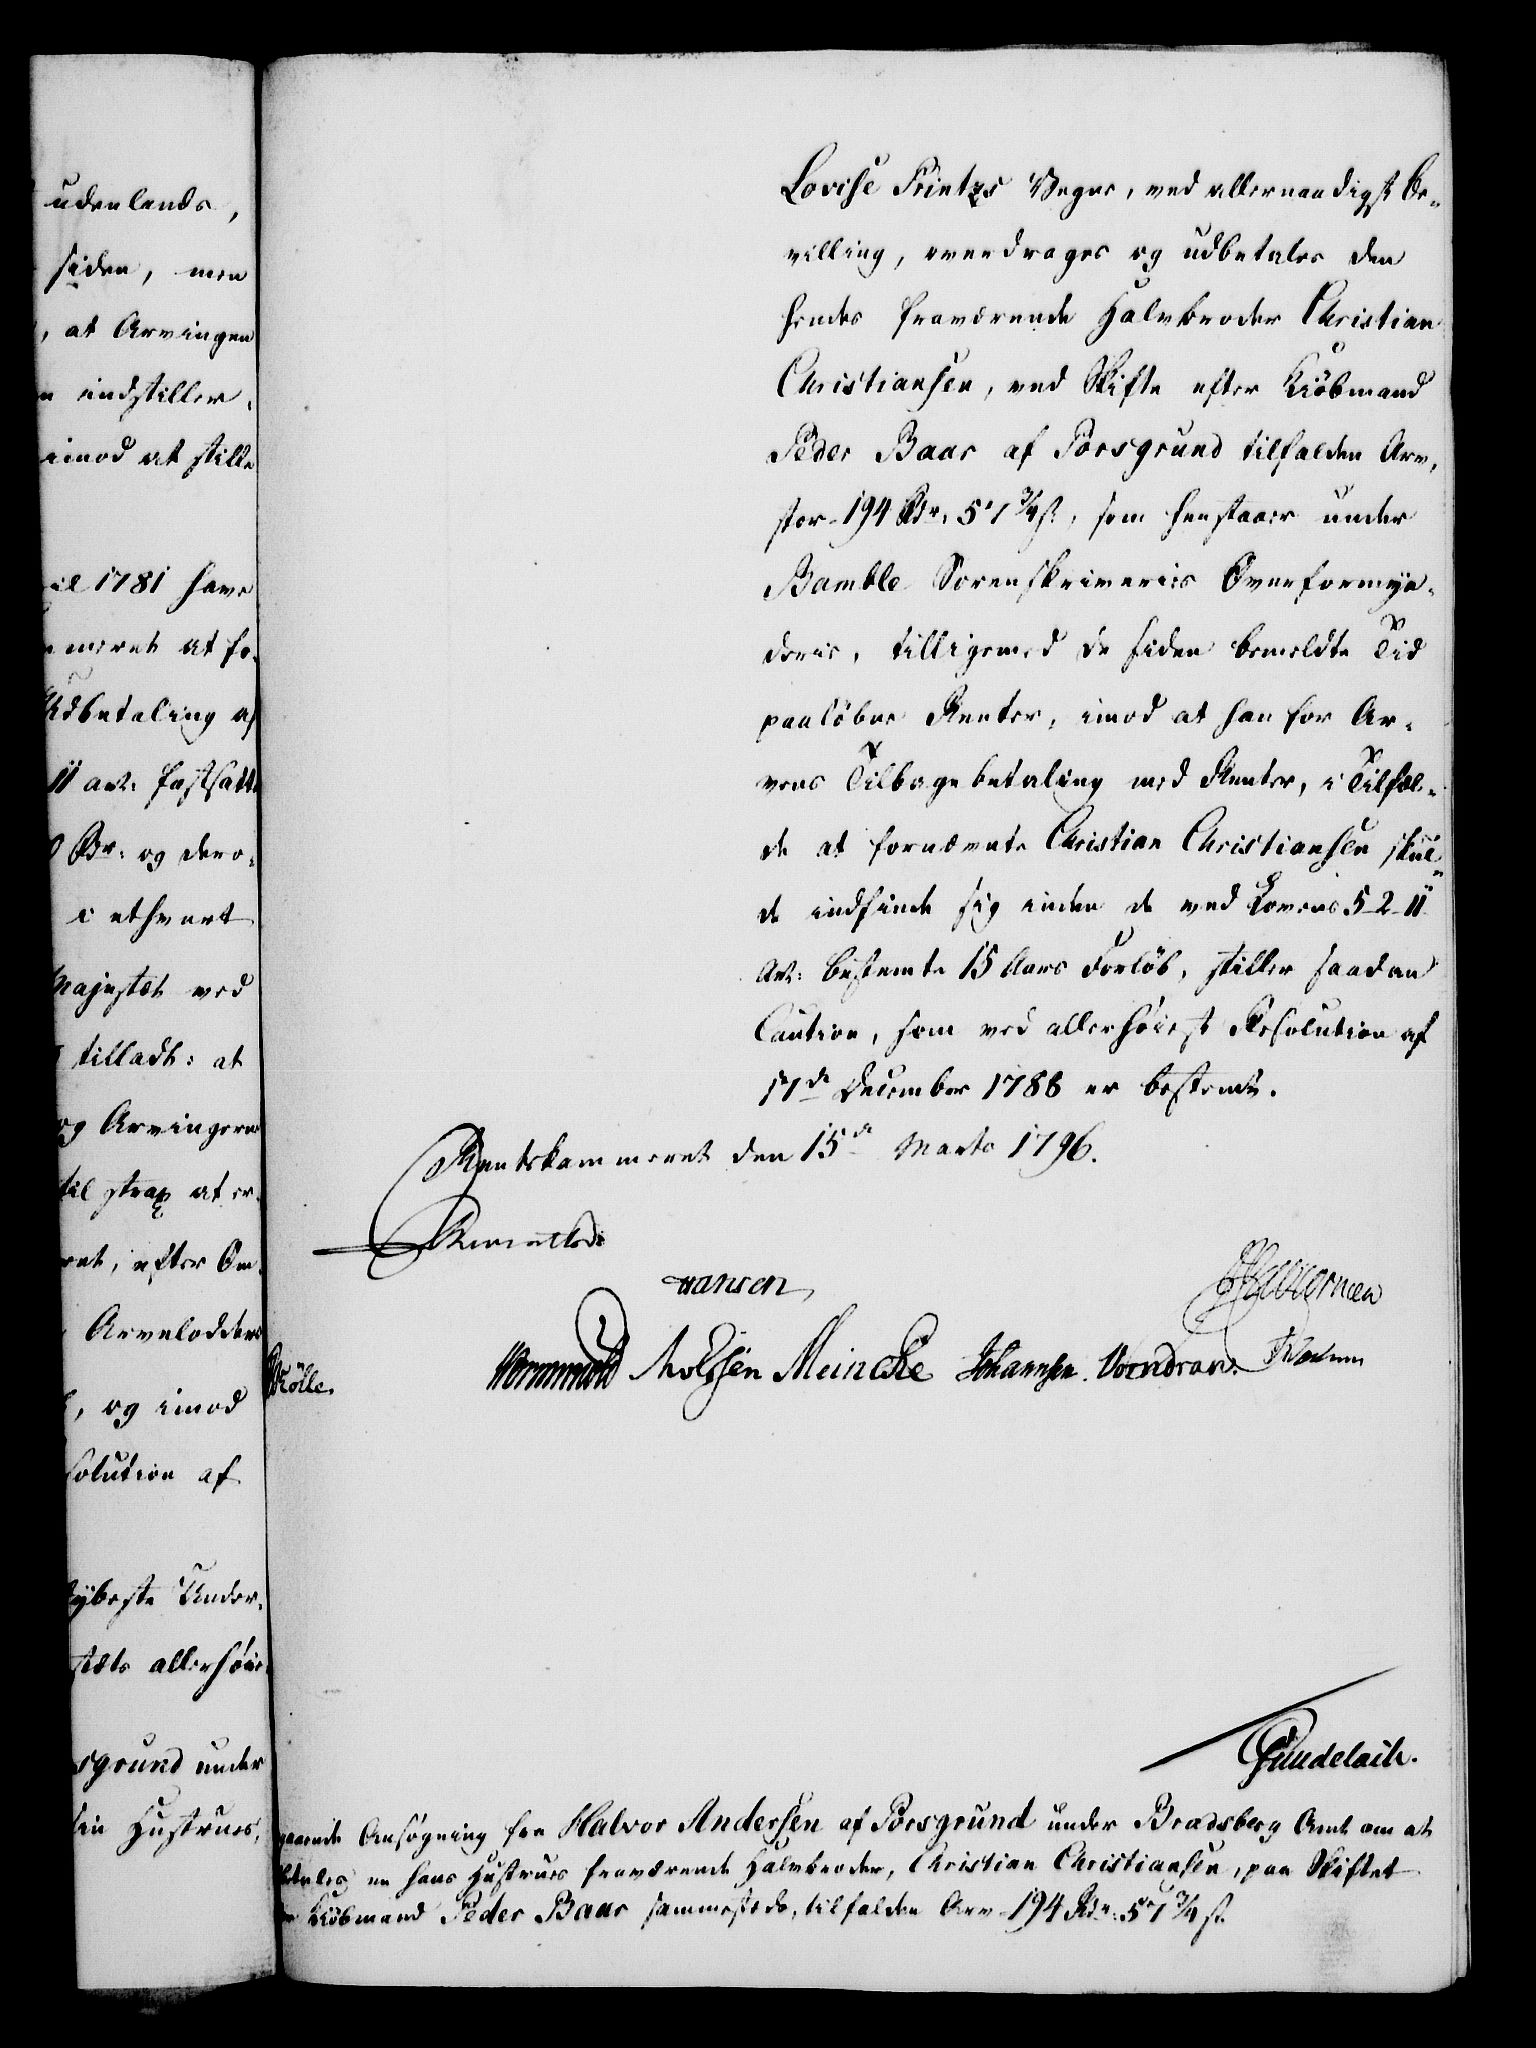 udenlands,
siden, men
, at Arvingen
indstiller,
imod at stille
1781 have
meret at fo-
Udbetaling af
11 art: fastsatte
Rdr: og dero-
i ethvert
Majestæt ved
tilladt: at
og Arvingerne
til strax at er-
ret, efter Om-
Arvelodders
, og imod
solution af
dybeste Under-
stæts allerhöie-
sgrund under
sin Hustrues,
Lovise Printzs Vegne, ved allernaadigst Be-
villing, overdrages og udbetales den
hendes fraværende Halvbroder Christian
Christiansen, ved Skifte efter Kiöbmand
Peder Baar af Porsgrund tilfalden Arv,
stor 194 Rdr. 57 3/4 s., som henstaaer under
Bamble Sorenskriveries Overformyn-
derie, tilligemed de siden bemeldte Tid
paalöbne Renter, imod at han for Ar-
vens Tilbagebetaling med Renter, i Tilfæl-
de at fornævnte Christian Christiansen skul-
de indfinde sig inden de ved Lovens 5-2-11
Art: bestemte 15 Aars Forlöb, stiller saadan
Caution, som ved allerhöiest Resolution af
17de December 1788 er bestemt.
Rentekammeret den 15de Marts 1796.
Reventlow
Hansen
Wormskiold Meincke Johannsen Vorndran.
Gundelach.
Ansögning fra Halvor Andersen af Porsgrund under Bradsberg Amt om at
en hans Hustrues fraværende Halvbroder, Christian Christiansen, paa Skiftet
Kiöbmand Peder Baar sammesteds, tilfalden Arv 194 Rdr: 57 3/4 s.